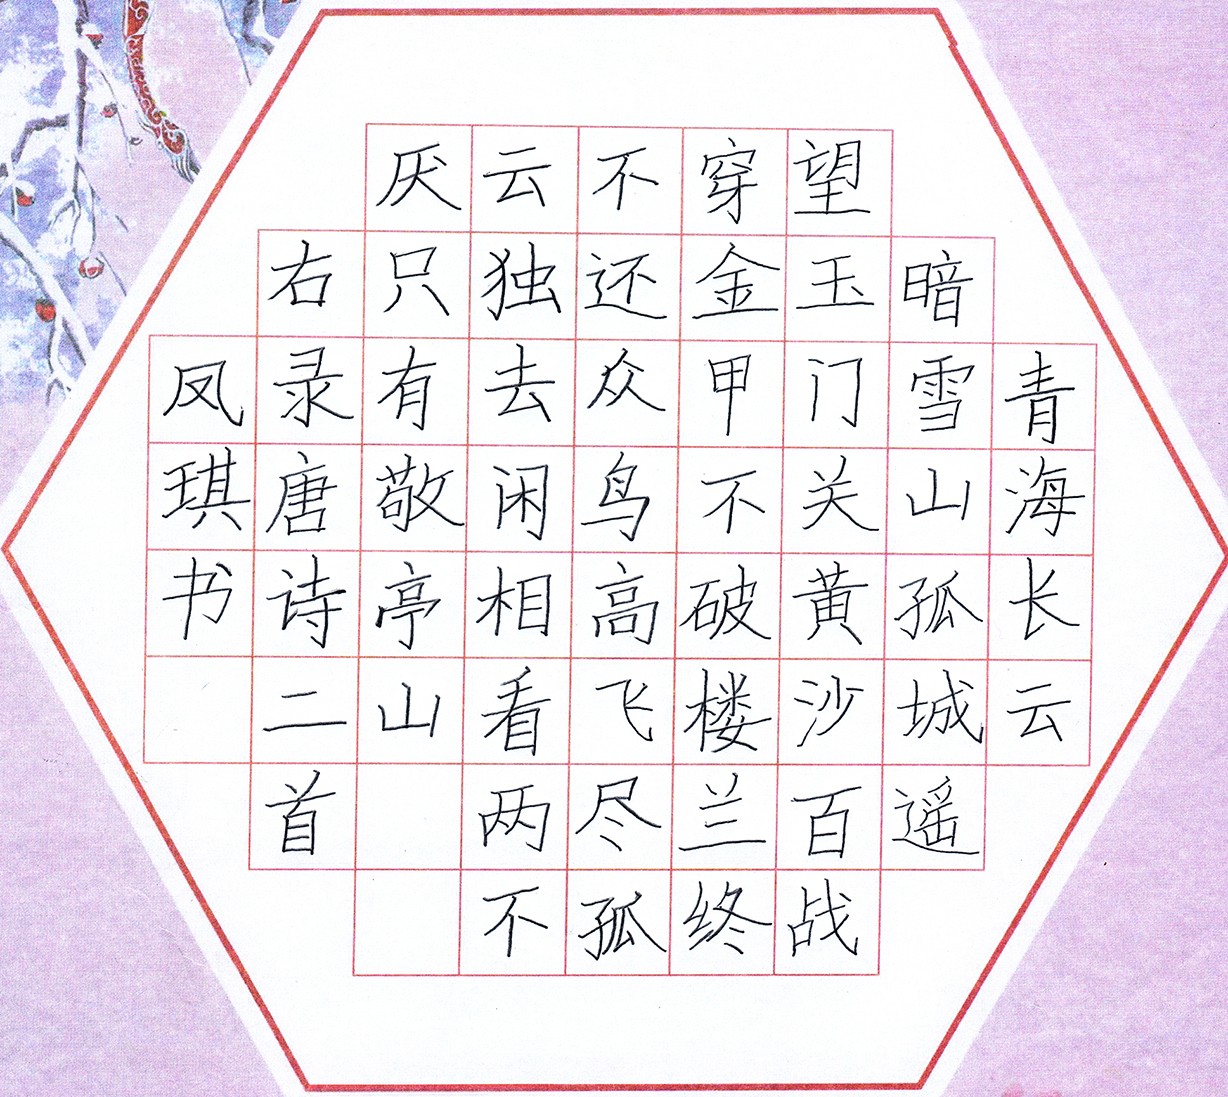 青海长云
暗雪山孤城遥
望玉门关黄沙百战
穿金甲不破楼兰终
不还众鸟高飞尽孤
云独去闲相看两不
厌只有敬亭山
右录唐诗二首
凤琪书